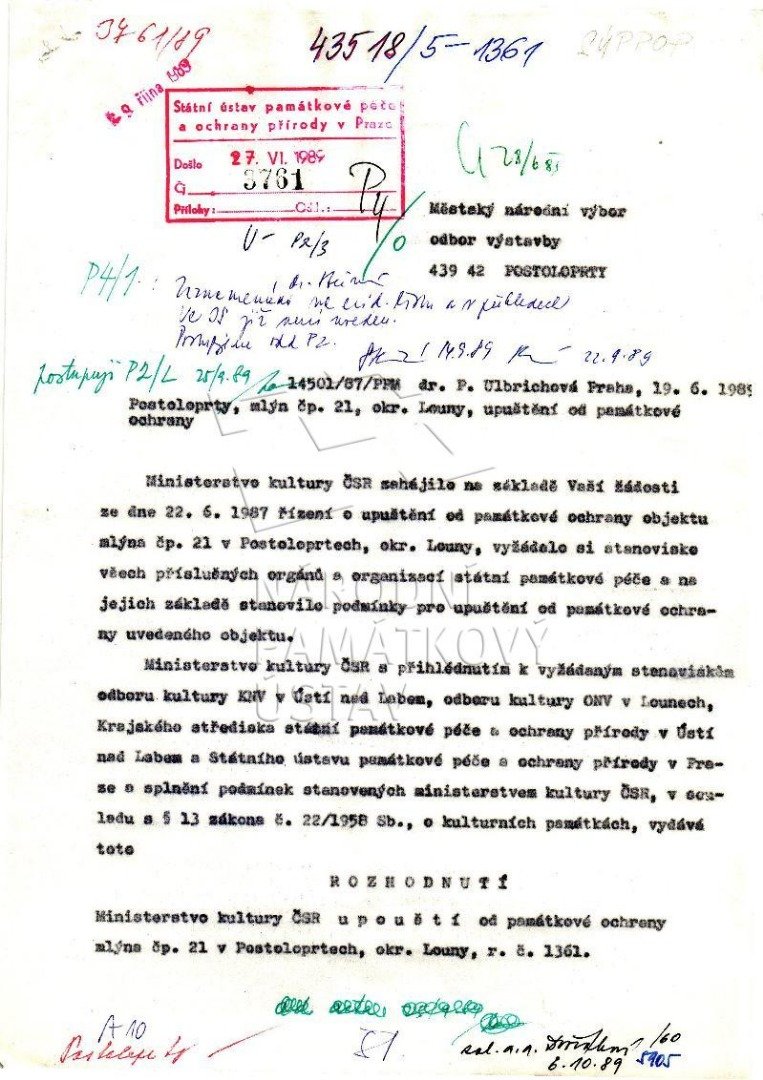 3761/89
43518/5-1361
24PPOP
29. října 1989
Státní ústav památkové péče
a ochrany přírody v Praze
Došlo 27. VI. 1989
Čj. 3761
Přílohy: Odd.:
28/6 89
Městský národní výbor
odbor výstavby
439 42 POSTOLOPRTY
V- P2/3
P4/1:
Postupujeme odd P2.
14.9.89
22.9.89
postupuji P2/L 25/9.89
14501/87/PPM dr. P. Ulbrichová Praha, 19. 6. 1989
Postoloprty, mlýn čp. 21, okr. Louny, upuštění od památkové
ochrany
Ministerstvo kultury ČSR zahájilo na základě Vaší žádosti
ze dne 22. 6. 1987 řízení o upuštění od památkové ochrany objektu
mlýna čp. 21 v Postoloprtech, okr. Louny, vyžádalo si stanovisko
všech příslušných orgánů a organizací státní památkové péče a na
jejich základě stanovilo podmínky pro upuštění od památkové ochra-
ny uvedeného objektu.
Ministerstvo kultury ČSR s přihlédnutím k vyžádaným stanoviskům
odboru kultury KNV v Ústí nad Labem, odboru kultury ONV v Lounech,
Krajského střediska státní památkové péče a ochrany přírody v Ústí
nad Labem a Státního ústavu památkové péče a ochrany přírody v Pra-
ze a splnění podmínek stanovených ministerstvem kultury ČSR, v sou-
ladu s § 13 zákona č. 22/1958 Sb., o kulturních památkách, vydává
toto
ROZHODNUTÍ
Ministerstvo kultury ČSR upouští od památkové ochrany
mlýna čp. 21 v Postoloprtech, okr. Louny, r. č. 1361.
NÁRODNÍ
PAMÁTKOVÝ
ÚSTAV
A10
Postoloprty
6.10.89
/60
5905